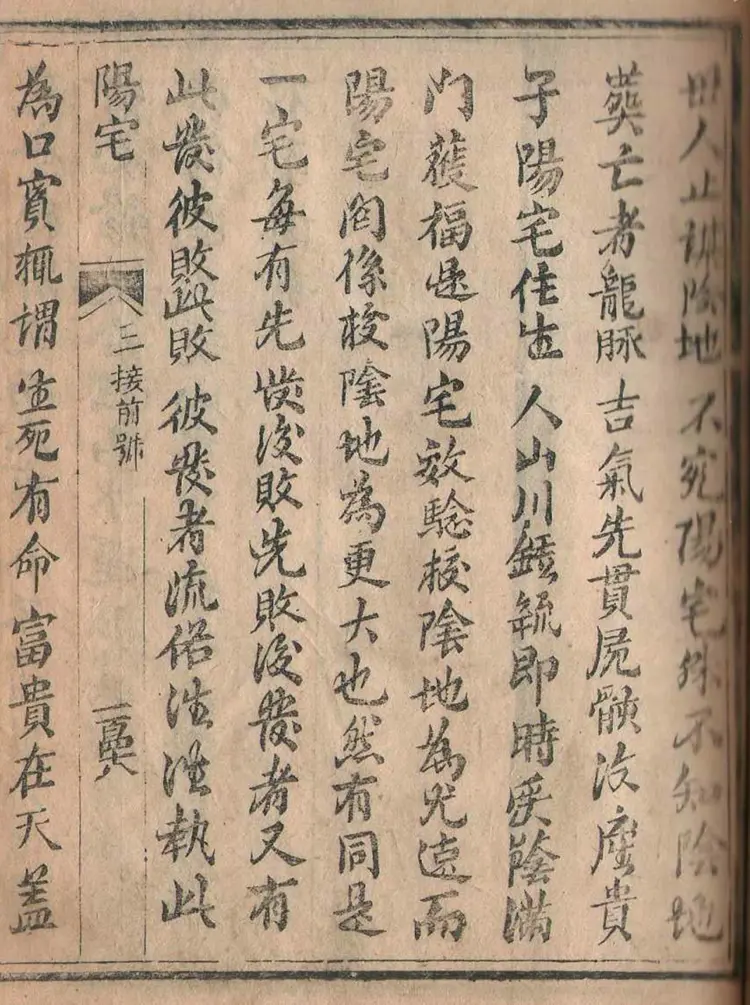 世人止講陰地不究陽宅殊不知陰地
葬亡者龍脉吉氣先貫屍骸次廕貴
子陽宅住生人山川鍾毓即時受蔭滿
門獲福是陽宅效驗挍陰地為尤速而
陽宅関係挍陰地為更大也然有同是
一宅每有先發後敗先敗後發者又有
此發彼敗此敗彼發者流俗往往執此
陽宅
三接前號
為口實輒謂生死有命富貴在天盖